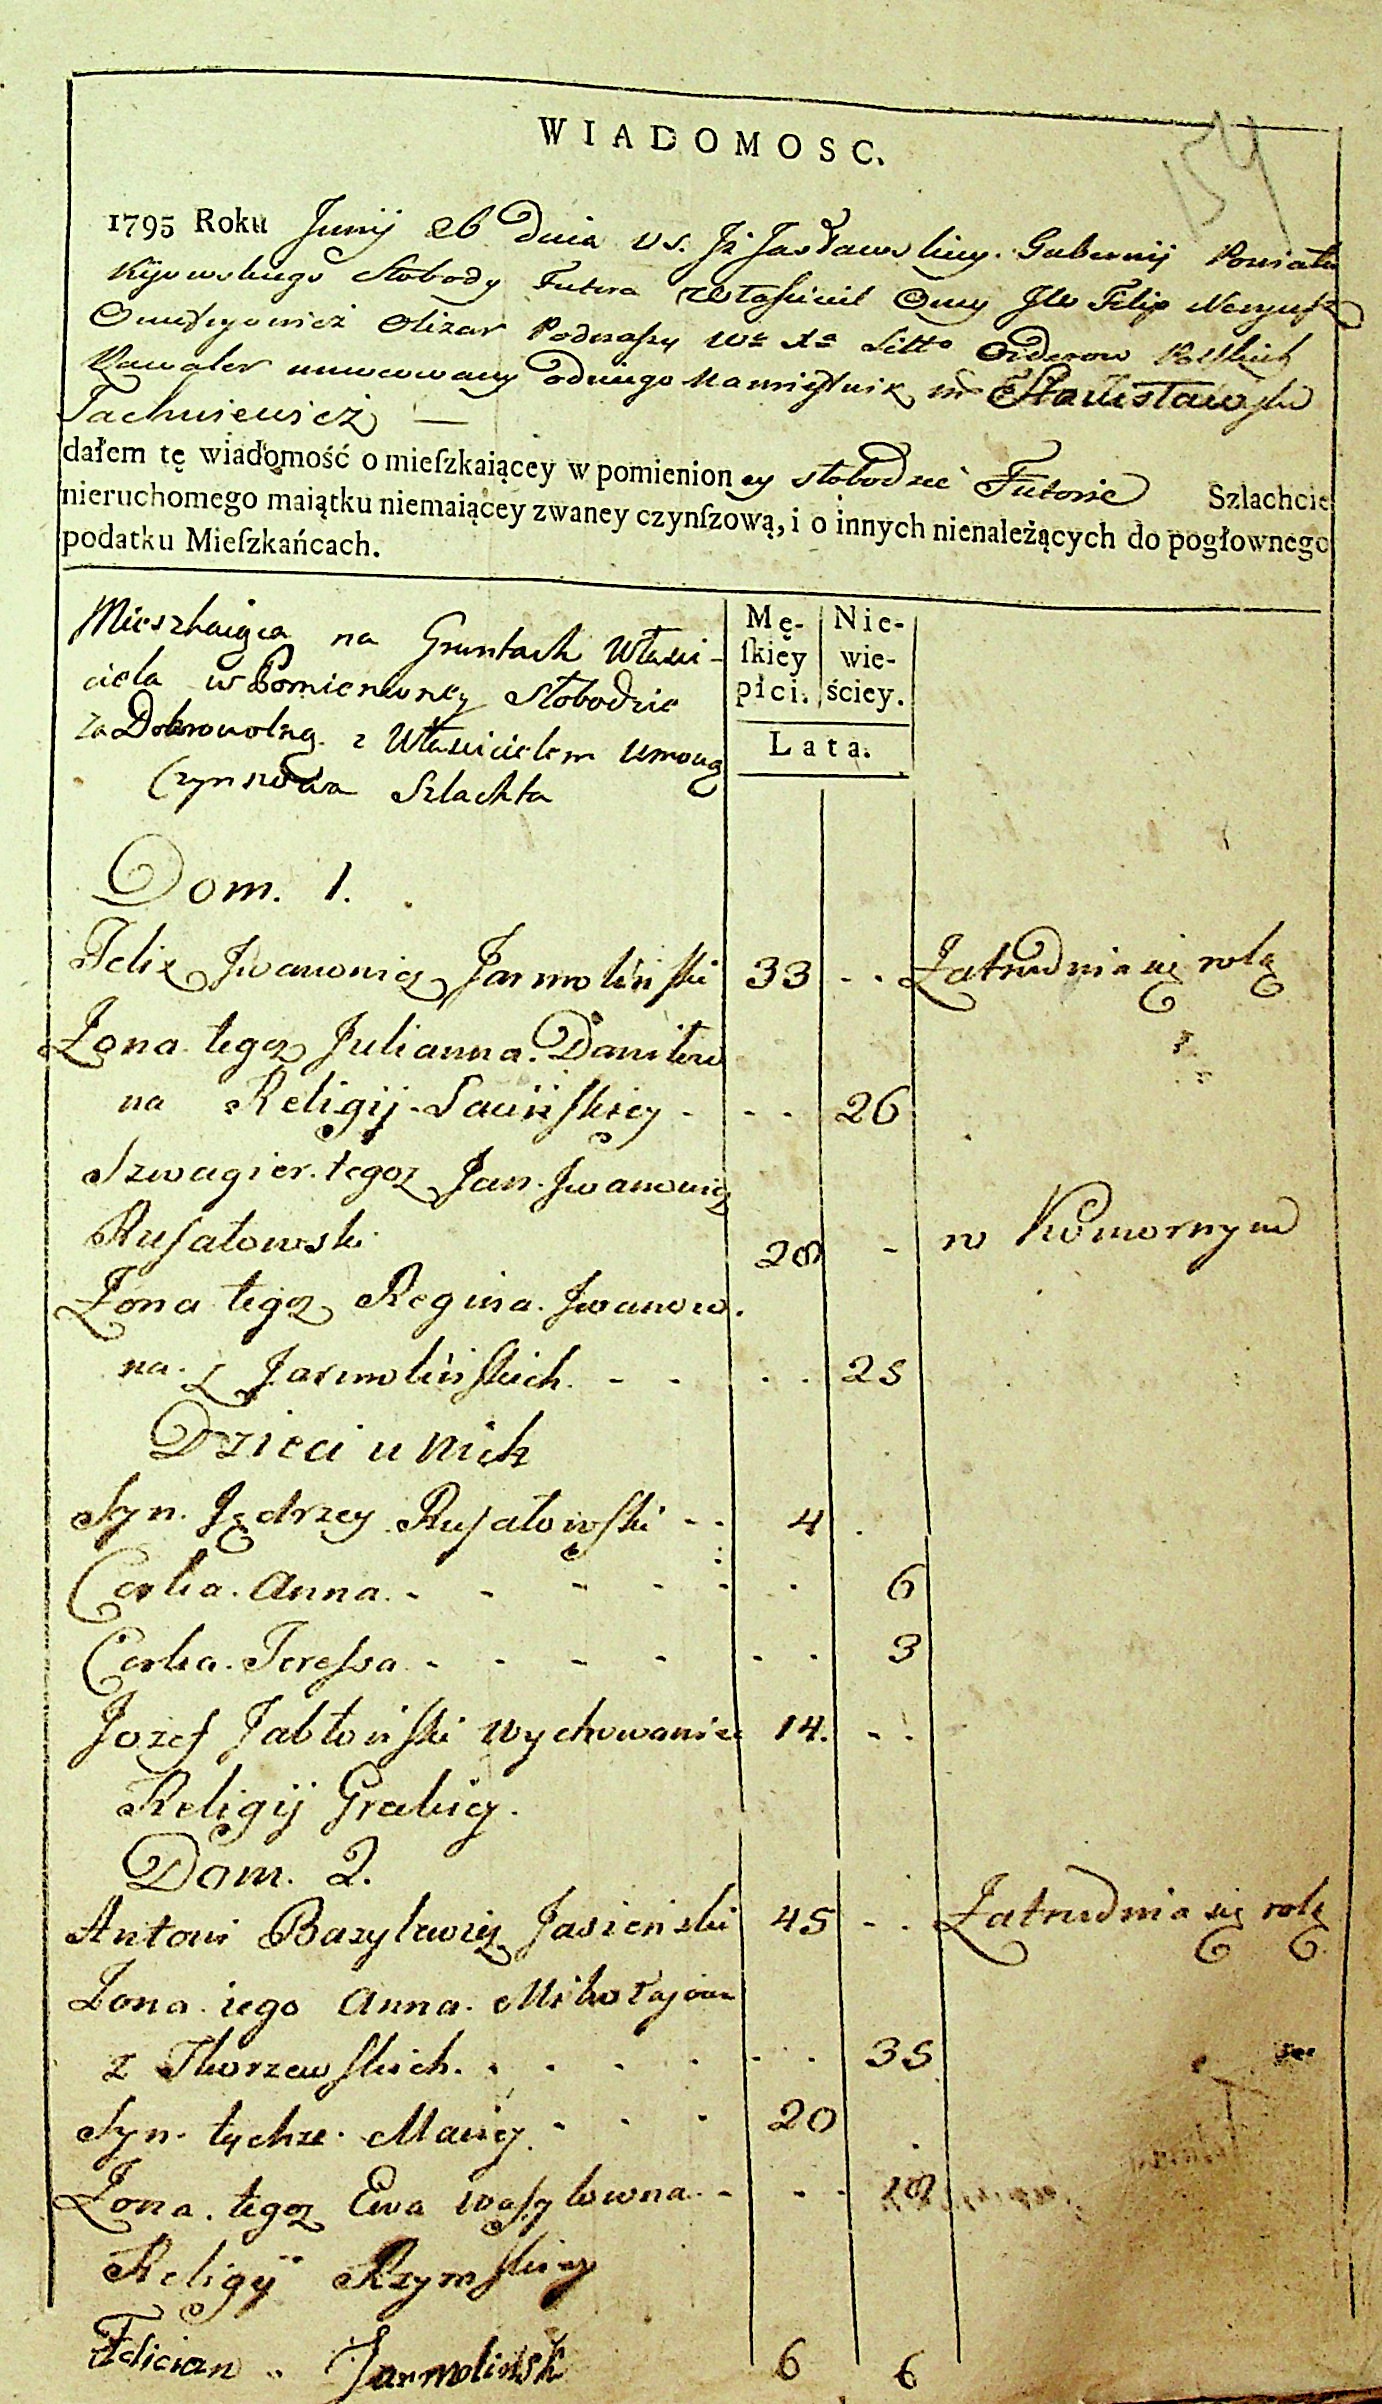 WIADOMOSC.
154
1795 Roku Junij 26 Dnia v s. Jż Jasławskiey Gubernij Powiatu
Kijowskiego Słobody Futora właściciel Oney JW Filip Neryusz
Onufryowicz Olizar Podczaszy Wo Xo Litto Orderow Polskich
Kawaler umocowany od niego Namiestnik Stanisław
Jachniewicz —
dałem tę wiadomość o mieſzkaiącey w pomienioney słobodzie Futorze Szlachcie
nieruchomego maiątku niemaiącey zwaney czynſzową, i o innych nienależących do pogłownego
podatku Mieſzkańcach.
Mieszkaiąca na Gruntach Właści-
ciela w Pomienioney Słobodzie
za Dobrowolną z Właścicielem umową
Czynszowa Szlachta
Mę-
ſkiey
płci.
Nie-
wie-
ściey.
Lata.
Dom. 1.
Felix Jwanowicz Jarmoliński 33 - - Zatrudnia się rolą
Żona tegoż Julianna Daniłow
na Religij Łacińskiey - - - 26
Szwagier tegoż Jan Jwanowicz
Rusałowski 28 - w Komornym
Żona tegoż Regina Jwanow.
na z Jarmolińskich - - . . 25
Dzieci u nich
Syn Jędrzey Rusałowski - - 4 .
Corka Anna - - - - - - 6
Corka Teressa - - - - - - 3
Jozef Jabłoński wychowaniec 14. - -
Religij Greckiey.
Dom. 2.
Antoni Bazylewicz Jasieński 45 - . Zatrudnia się rolą
Żona iego Anna Mikołajowna
z Tworzewskich . . . . . . 35
Syn tychże Maciey - - - 20 .
Żona tegoż Ewa Wasylowna - - - 18
Religij Rzymskiey
Felician Jarmolińsk 6 6